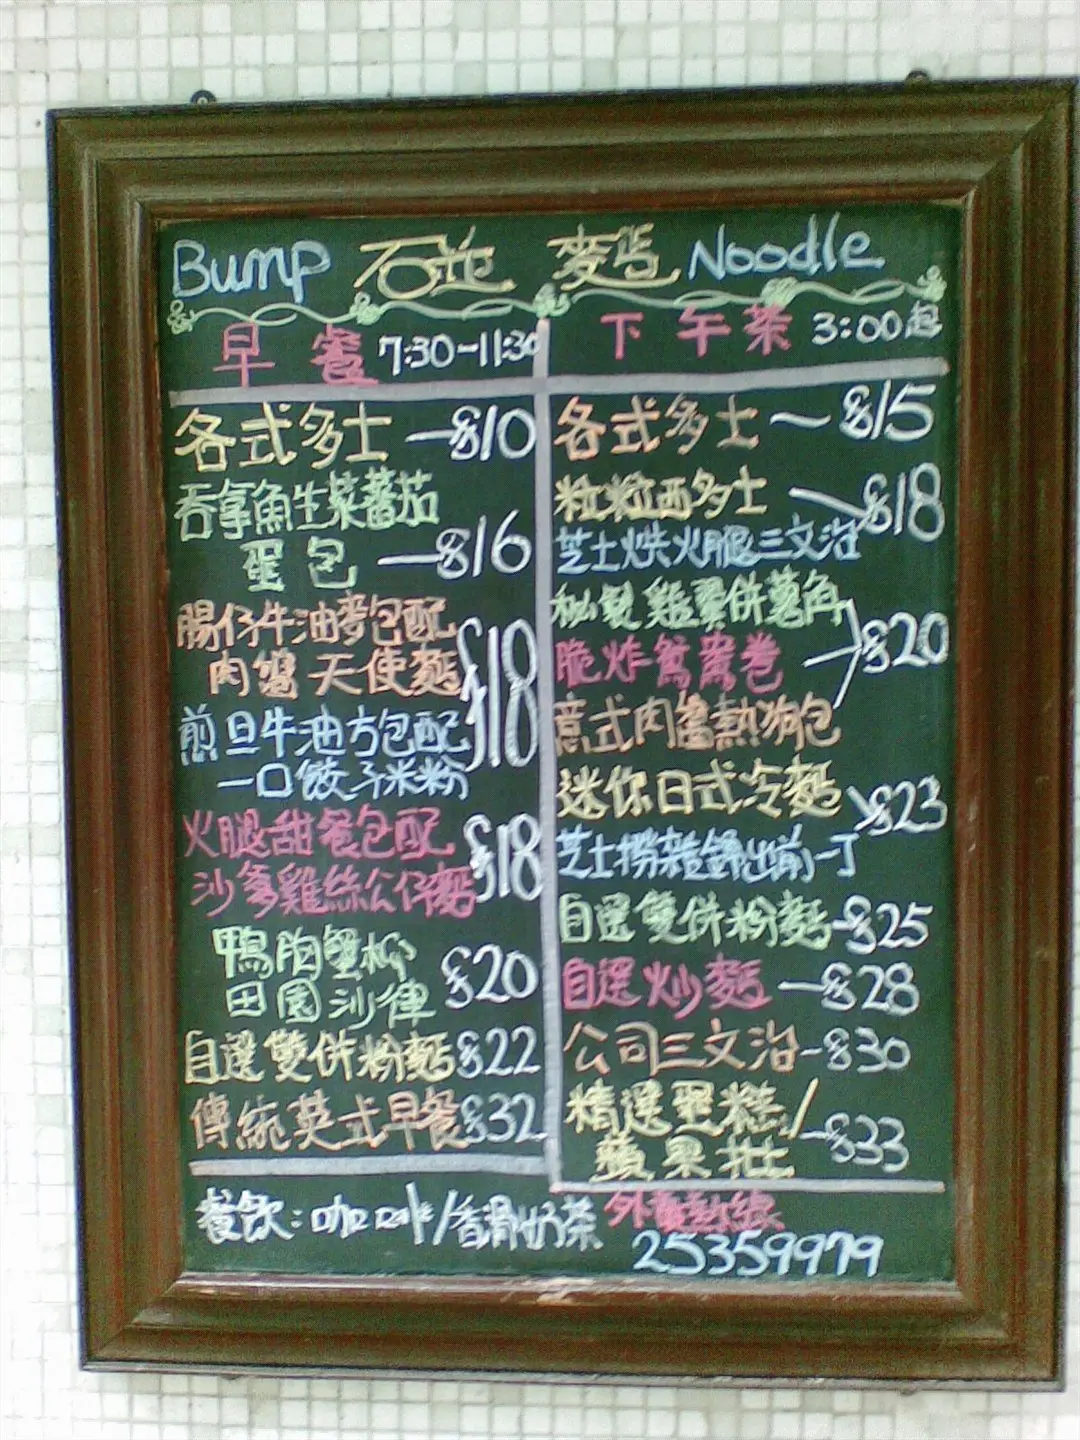 Bump 石 麵 Noodle
早餐 7:30-11:30
各式多士 - $10
吞拿魚生菜蕃茄
蛋包 - $16
腸仔牛油麥包配
肉醬天使麵 $18
煎旦牛油方包配
一口餃子米粉 $18
火腿甜餐包配
沙爹雞絲公仔麵 $18
鴨胸蟹柳
田園沙律 $20
自選雙併粉麵 $22
傳統英式早餐 $32
下午茶 3:00起
各式多士 - $15
粒粒西多士 - $18
芝士烘火腿三文治
秘製雞翼併薯角
脆炸鴛鴦卷 - $20
意式肉醬熱狗包
迷你日式冷麵 $23
芝士撈雜錦出前一丁
自選雙併粉麵 - $25
自選炒麵 - $28
公司三文治 - $30
精選蛋糕/
蘋果批 - $33
餐飲:咖啡/香滑奶茶
外賣熱線
25359979